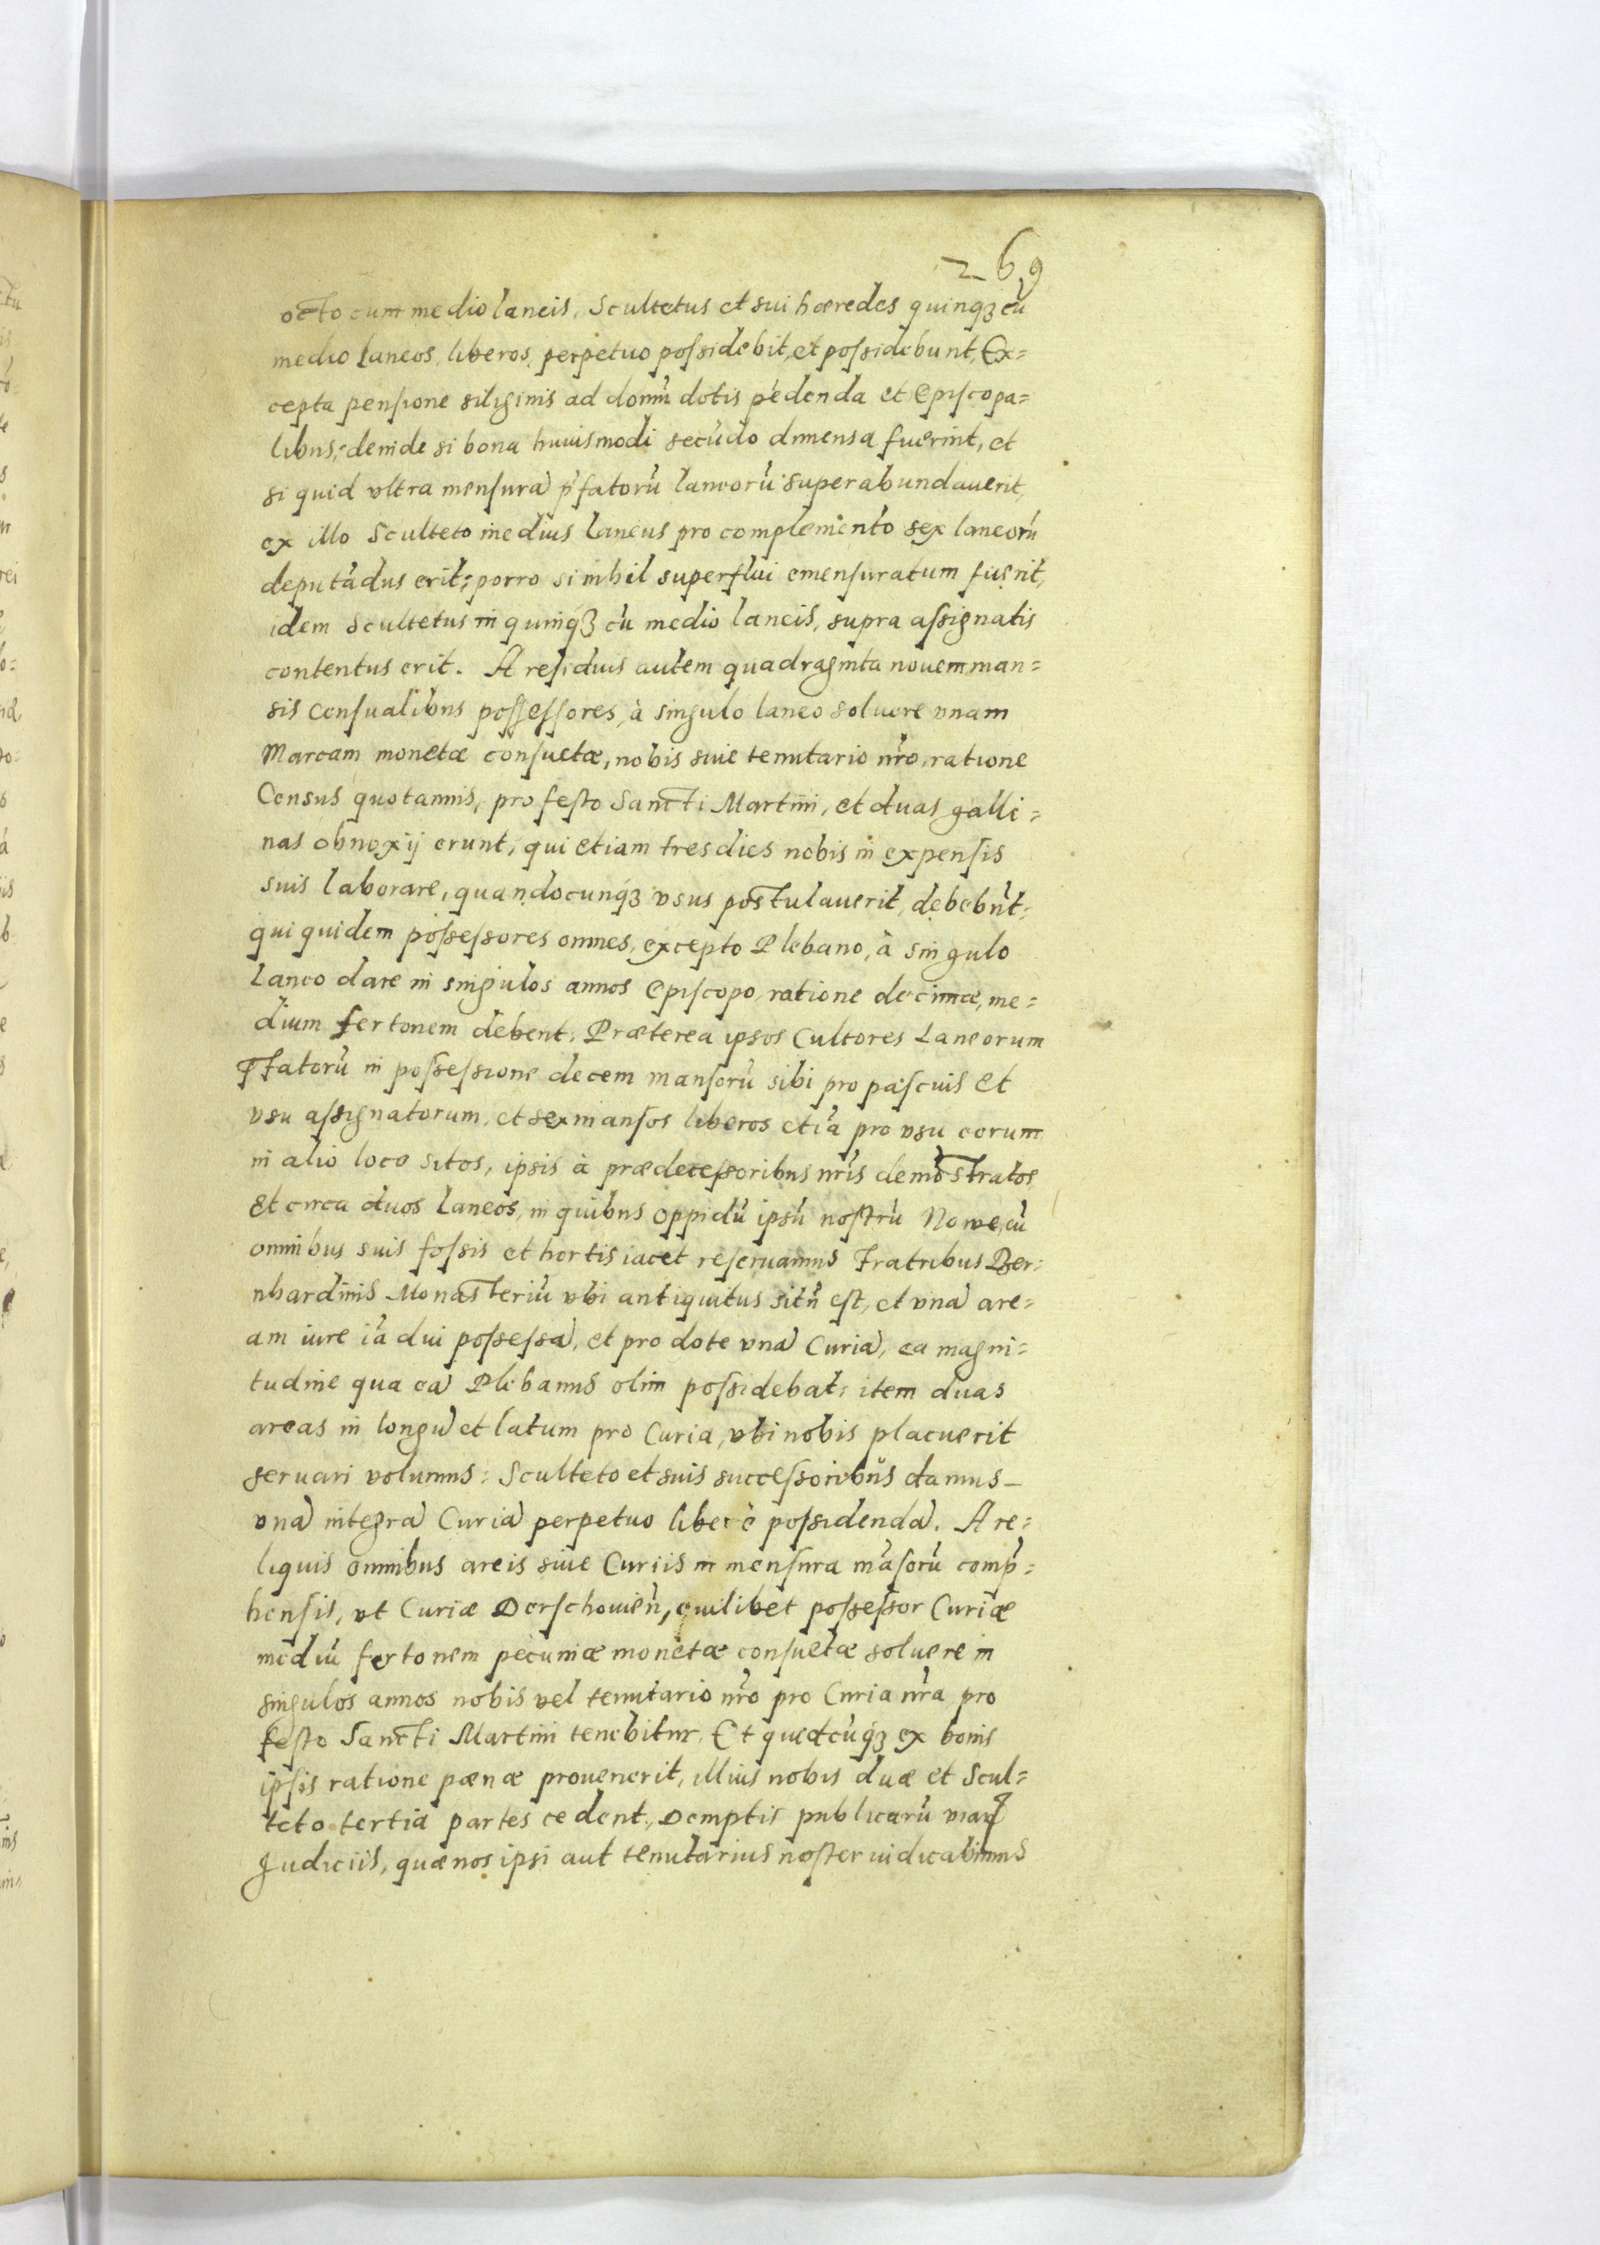 269
octo cum medio laneis, Scultetus et sui hæredes quinqꝫ cū
medio laneos, liberos, perpetuo possidebit, et possidebunt, Ex=
cepta pensione siliginis ad domū dotis pēdenda et Episcopa=
libus; deinde si bona huiusmodi secūdo dimensa fuerint, et
si quid vltra mensurā p̄fatorū laneorū superabundauerit,
ex illo Sculteto medius laneus pro complemento sex laneorū
deputādus erit; porro si nihil superflui emensuratum fuerit,
idem Scultetus in quinqꝫ cū medio laneis, supra assignatis
contentus erit. A residuis autem quadraginta nouem man=
sis censualibus possessores, à singulo laneo soluere vnam
Marcam monetæ consuetæ, nobis siue tenutario nr̄o, ratione
Census quotannis, pro festo Sancti Martini, et duas galli=
nas obnoxij erunt, qui etiam tres dies nobis in expensis
suis laborare, quandocunqꝫ vsus postulauerit, debebūt:
qui quidem possessores omnes, excepto Plebano, à singulo
Laneo dare in singulos annos Episcopo, ratione decimæ, me=
dium fertonem debent. Præterea ipsos Cultores Laneorum
p̄fatorū in possessione decem mansorū sibi pro pascuis et
vsu assignatorum, et sex mansos liberos etiā pro vsu eorum
in alio loco sitos, ipsis à prædecessoribus nr̄is demōstratos
et circa duos laneos, in quibus oppidū ipsū nostrū Nowe, cū
omnibus suis fossis et hortis iacet reseruamus Fratribus Ber=
nhardinis Monasteriū vbi antiquitus sitū est, et vnā are=
am iure iā dui possessā, et pro dote vnā Curiā, ea magni=
tudine qua eā Plebanus olim possidebat: item duas
areas in longū et latum pro Curia, vbi nobis placuerit
seruari volumus: Sculteto et suis successoribus damus_
vnā integrā Curiā perpetuo liberè possidendā. A re=
liquis omnibus areis siue Curiis in mensura māsorū comp̄=
hensis, vt Curiæ Derschouien̄, quilibet possessor Curiæ
mediū fertonem pecuniæ monetæ consuetæ soluere in
singulos annos nobis vel tenutario nr̄o pro Curia nr̄a pro
festo Sancti Martini tenebitur. Et quidcūqꝫ ex bonis
ipsis ratione pœnæ prouenerit, illius nobis duæ et Scul=
teto tertia partes cedent, Demptis publicarū viarꝝ
Judiciis, quæ nos ipsi aut tenutarius noster iudicabimus